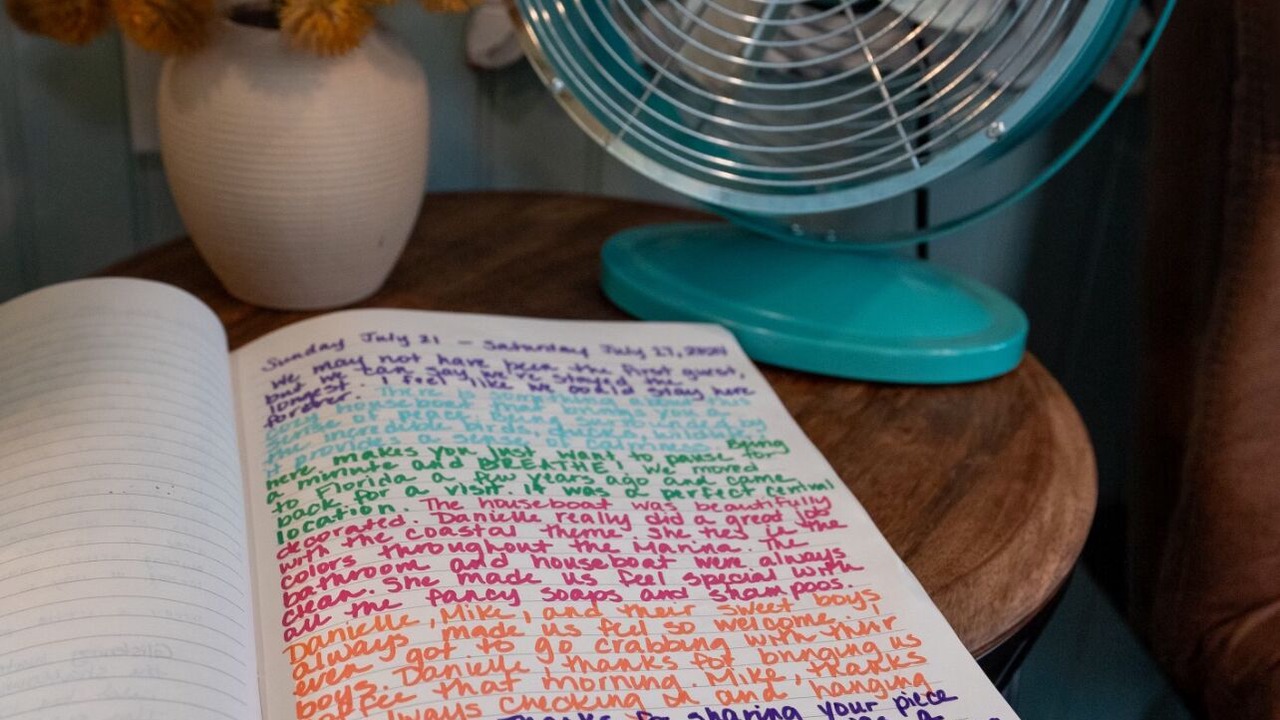 Sunday July 21 - Saturday July 27, 2024
We may not have been the first guest,
but we can say we've stayed the
longest. I feel like we could stay here
forever. There is something about
house boat that brings you a
sense of peace.
incredible birds,
it provides a sense of calmness. Being
here makes you just want to pause for
a minute and BREATHE! We moved
to Florida a few years ago and came
back for a visit. It was a perfect central
location. The houseboat was beautifully
decorated. Danielle really did a great job
with the coastal theme. She tied in the
colors throughout the Marina. The
bathroom and houseboat were always
clean. She made us feel special with
all the fancy soaps and shampoos.
Danielle, Mike, and their sweet boys
always made us feel so welcome.
even got to go crabbing with their
boys. Danielle, thanks for bringing us
coffee that morning. Mike, thanks
always checking in and hanging
Thanks for sharing your piece